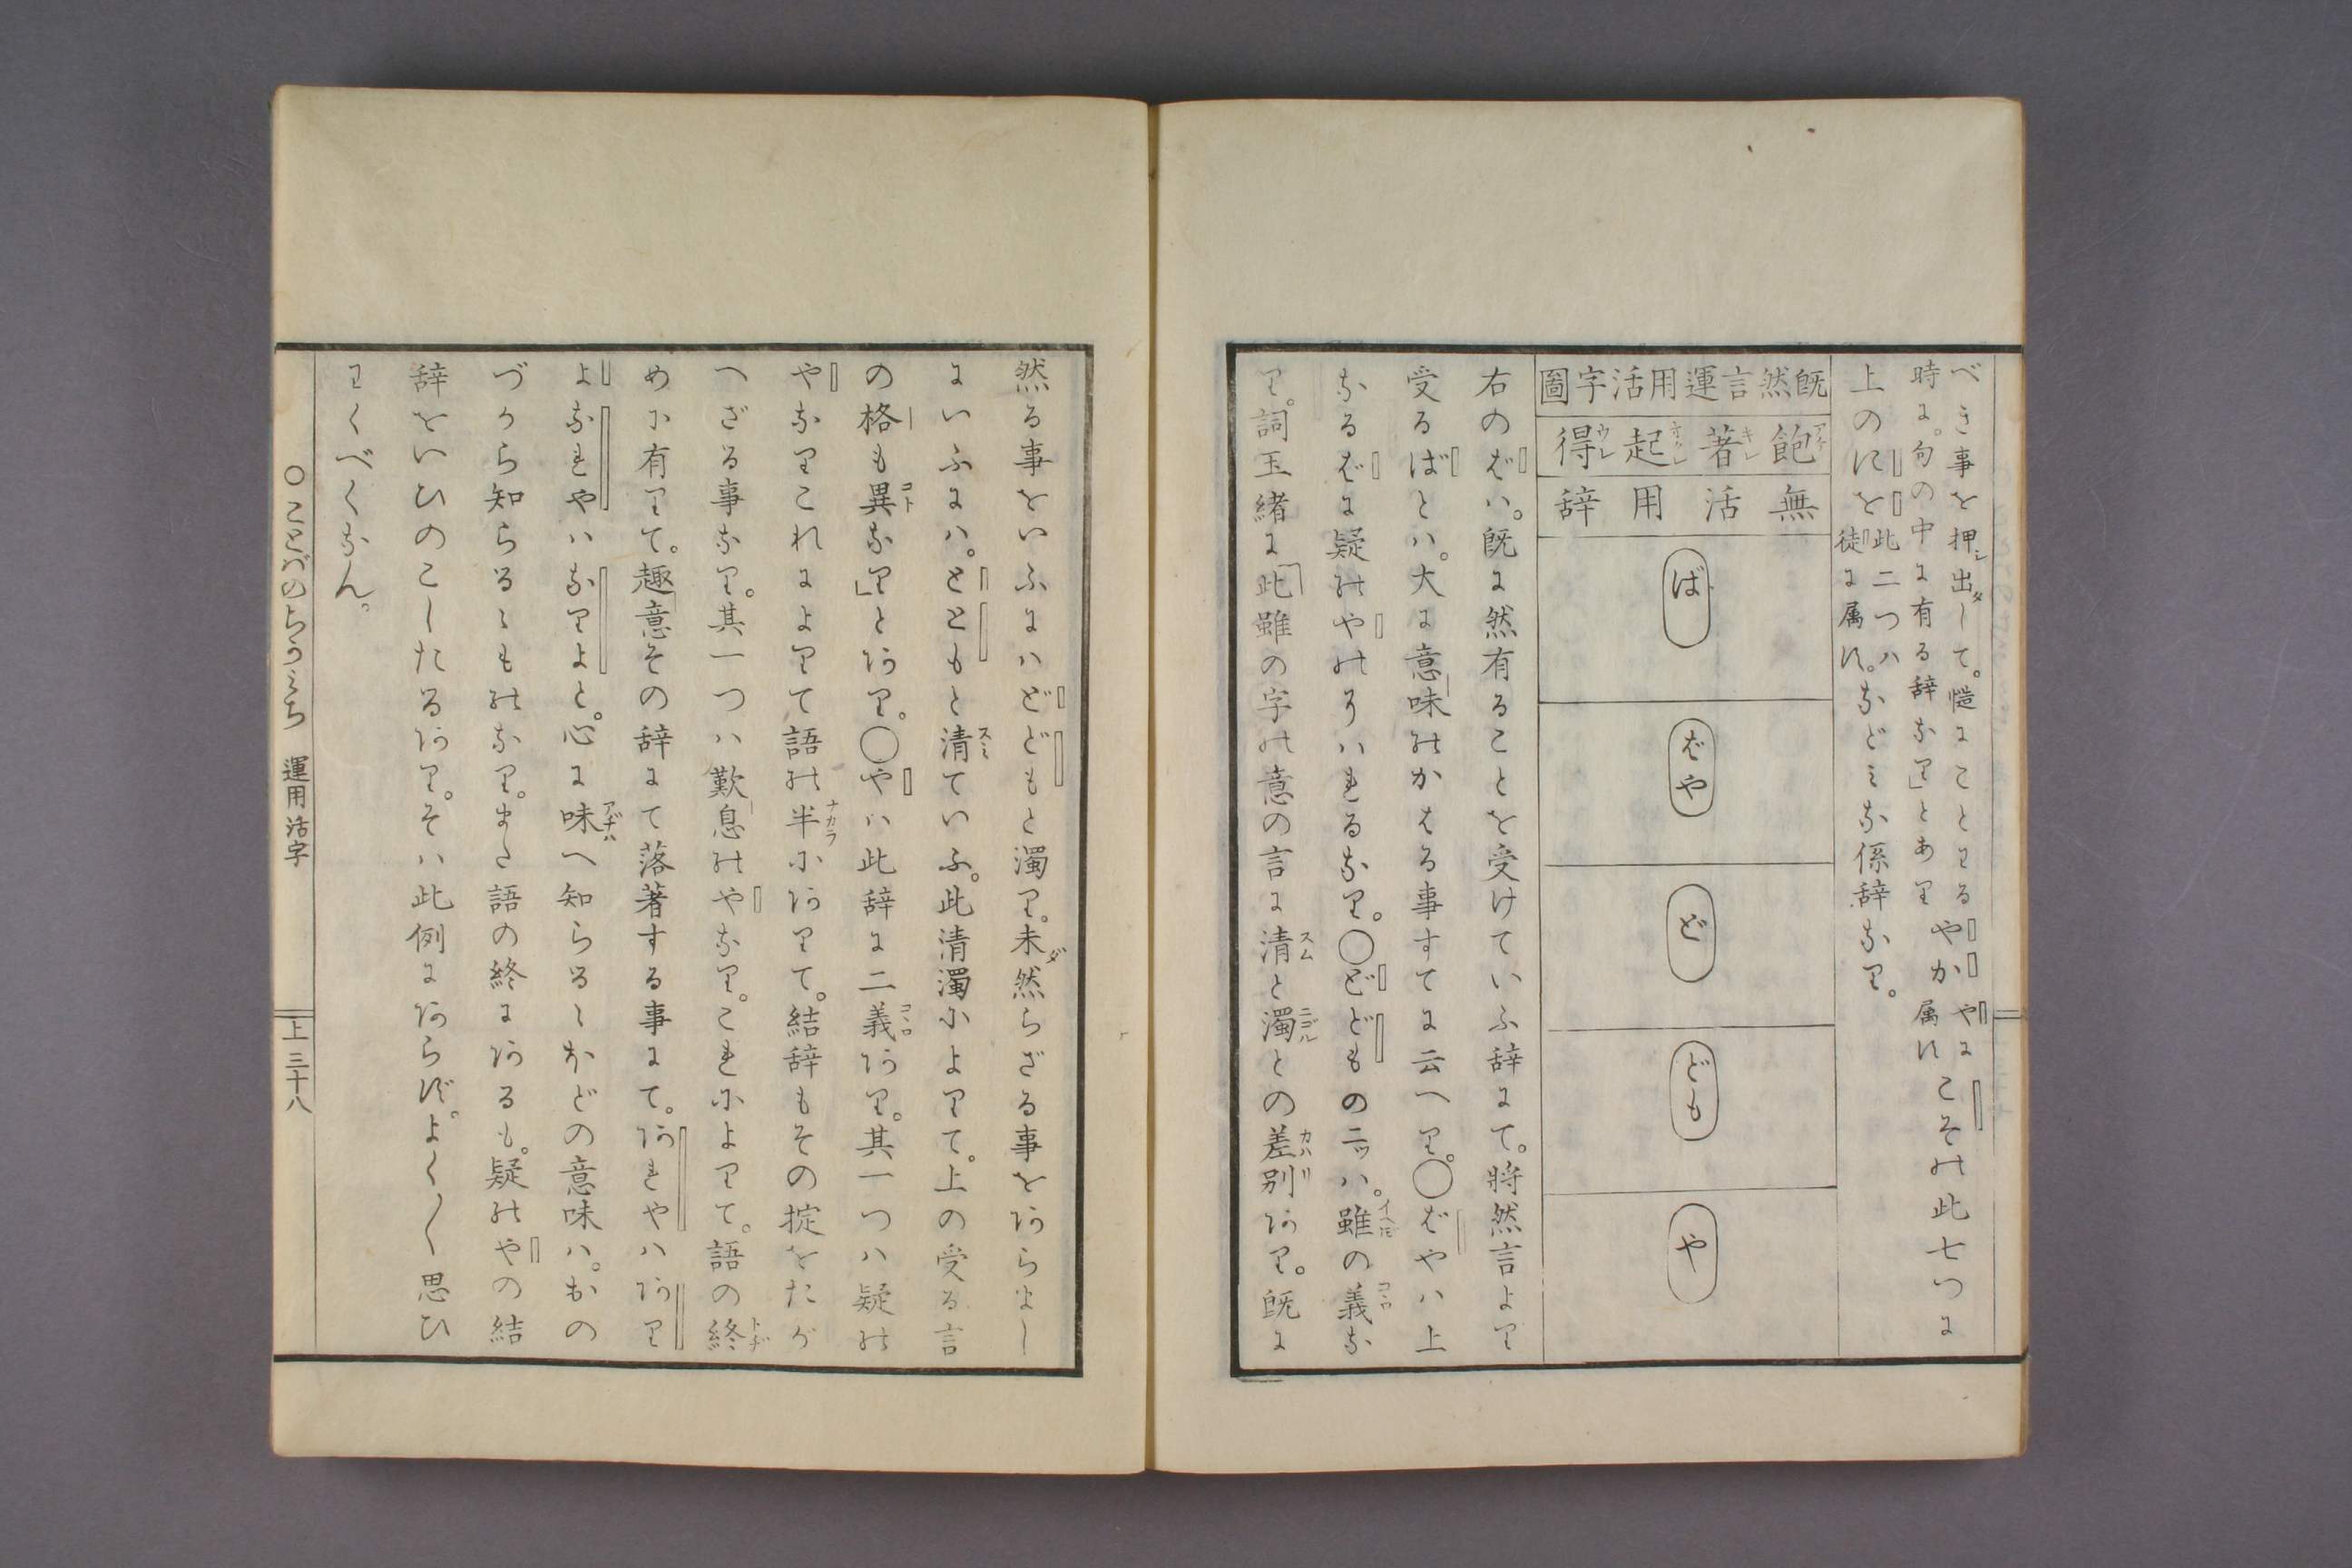 べき事を押シ出ダして。慥にことわる
時に。句の中に有る辞なり」とあり
やか
やに属す
こその此七つに
上のにを此二つハ徒に属す。などミな係辞なり。
既然言運用活字圖
飽アケ 著キレ 起オクレ 得ウレ
無活用辞
ば
ばや
ど
ども
や
右のばハ。既に然有ることを受けていふ辞にて。將然言より
受るばとハ。大に意味のかはる事すてに云へり。〇ばやハ上
なるばに疑のやのそハれるなり。〇どどもの二ッハ。雖イヘドモの義コヽロな
り。詞玉緒に「此雖の字の意の言に清スムと濁ニゴルとの差別カハリあり。既に
然る事をいふにハどどもと濁り。未ダ然らざる事をあらまし
にいふにハ。ととと もと清スミていふ。此清濁によりて。上の受る言
の格も異コトなり」とあり。〇やハ此辞に二義コヽロあり。其一つハ疑の
やなりこれによりて語の半ナカラにありて。結辞もその掟をたが
へざる事なり。其一つハ歎息のやなり。これによりて。語の終トヂ
めに有りて。趣意その辞にて落著する事にて。あれやハあり
よなれやハなりよと。心に味アヂハへ知らるゝなどの意味ハ。おの
づから知らるゝものなり。また語の終にあるも。疑のやの結
辞をいひのこしたるあり。そハ此例にあらず。よく〱思ひ
わくべくなん。
〇ことばのちかみち 運用活字 上 三十八